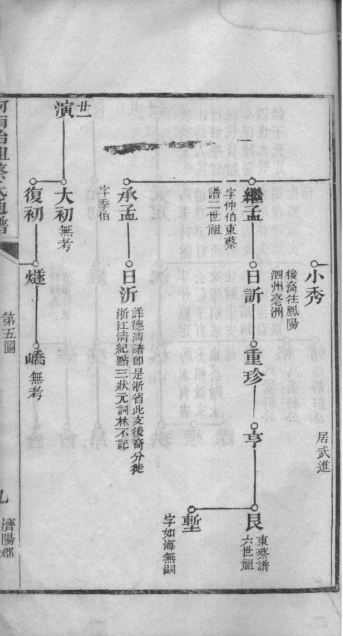 居武進
小秀
後裔往鳳陽
泗州亳洲
繼孟
字仲伯東蔡
譜二世祖
日訢
重珍
亨
艮
東蔡譜
六世祖
塹
字如海無嗣
承孟
字季伯
日沂
詳德清譜卽是浙省此支後裔分徙
浙江清紀點三狀元詞林不記
廿一
演
大初
無考
復初
燧
嶠
無考
蔡氏通譜
第五圖
九
濟陽郡